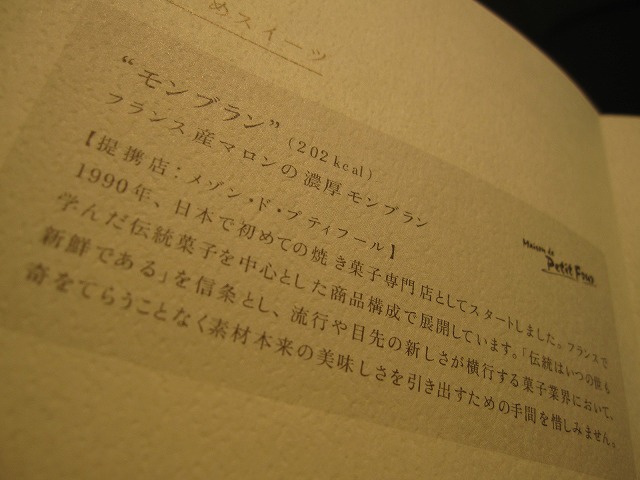 めスイーツ
“モンブラン”(202kcal)
フランス産マロンの濃厚モンブラン
【提携店:メゾン・ド・プティフール】
1990年、日本で初めての焼き菓子専門店としてスタートしました。フランスで
学んだ伝統菓子を中心とした商品構成で展開しています。「伝統はいつの世も
新鮮である」を信条とし、流行や目先の新しさが横行する菓子業界において、
奇をてらうことなく素材本来の美味しさを引き出すための手間を惜しみません。
Maison de
Petit Four